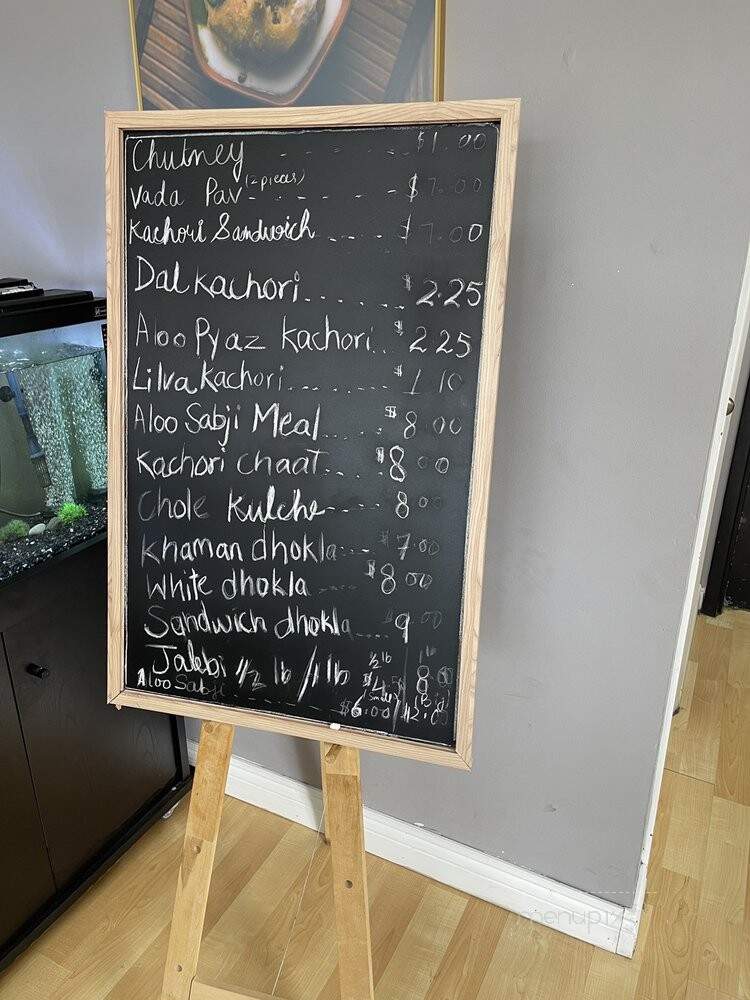 Chutney - - - - $1.00
Vada Pav (2 pieces) - - - - - $7.00
Kachori Sandwich - - - - $7.00
Dal kachori . . . . . . $2.25
Aloo Pyaz kachori . . $2.25
Lilva kachori . . . . . . $1.10
Aloo Sabji Meal . . . . $8.00
Kachori chaat . . . $8.00
Chole Kulche - - - - 8.00
Khaman dhokla - - - $7.00
White dhokla - - - - $8.00
Sandwich dhokla . . . . 9.00
Jalebi 1/2 lb / 1 lb 1/2 lb 1 lb
8.00
Aloo Sabji (Small) (Big)
$6.00 / 12.0
menupix